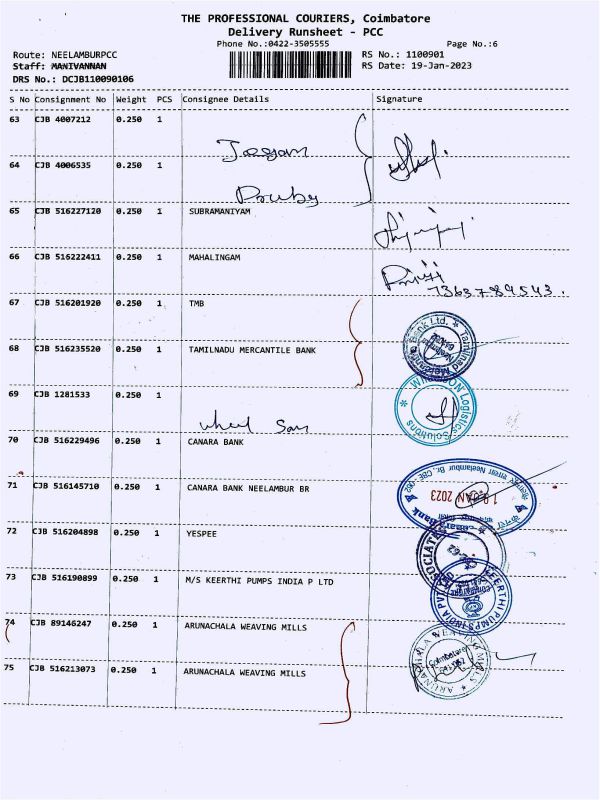 THE PROFESSIONAL COURIERS, Coimbatore
Delivery Runsheet - PCC
Phone No.:0422-3505555 Page No.:6
Route: NEELAMBURPCC RS No.: 1100901
Staff: MANIVANNAN RS Date: 19-Jan-2023
DRS No.: DCJB110090106
S No Consignment No Weight PCS Consignee Details Signature
63 CJB 4007212 0.250 1
64 CJB 4006535 0.250 1
65 CJB 516227120 0.250 1 SUBRAMANIYAM
66 CJB 516222411 0.250 1 MAHALINGAM
67 CJB 516201920 0.250 1 TMB
68 CJB 516235520 0.250 1 TAMILNADU MERCANTILE BANK
69 CJB 1281533 0.250 1
70 CJB 516229496 0.250 1 CANARA BANK
71 CJB 516145710 0.250 1 CANARA BANK NEELAMBUR BR
19 JAN 2023
72 CJB 516204898 0.250 1 YESPEE
73 CJB 516190899 0.250 1 M/S KEERTHI PUMPS INDIA P LTD
74 CJB 89146247 0.250 1 ARUNACHALA WEAVING MILLS
75 CJB 516213073 0.250 1 ARUNACHALA WEAVING MILLS